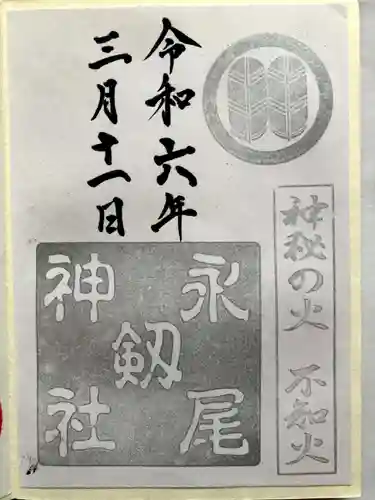 令和六年
三月十一日
神秘の火 不知火
永尾
剱
神社